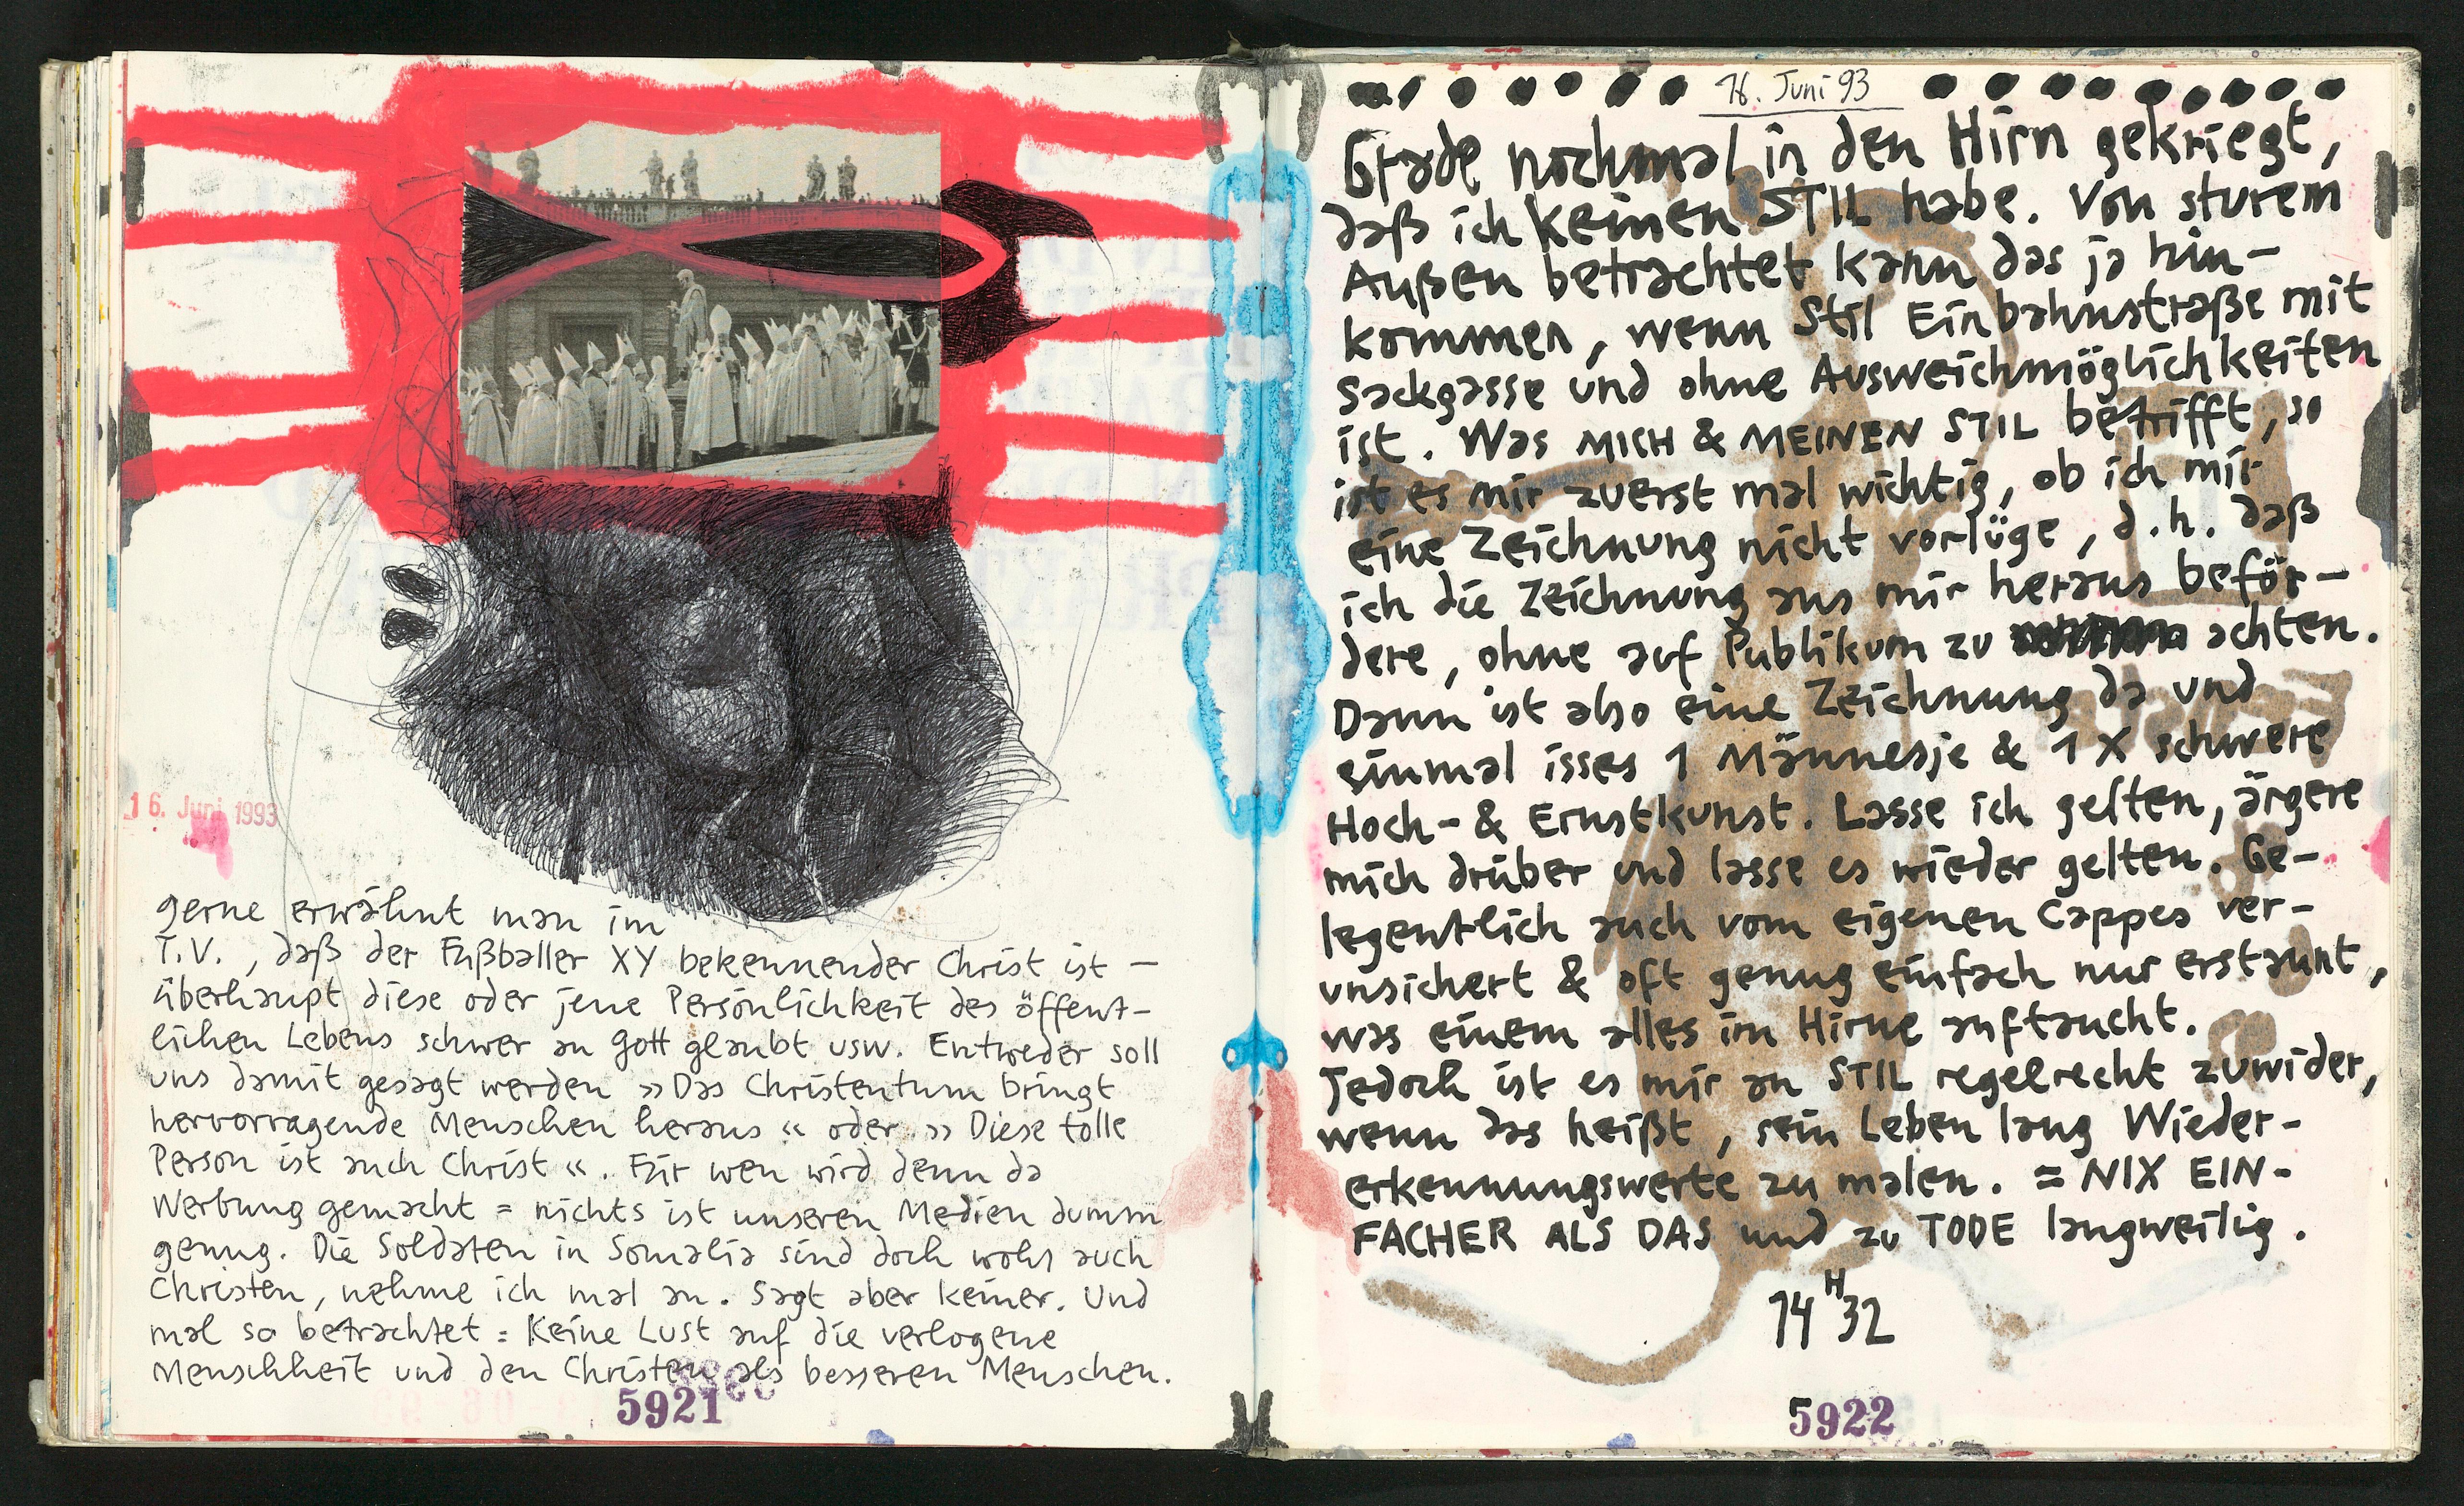 16. Juni 1993
gerne erwähnt man im
T.V., daß der Fußballer XY bekennender Christ ist –
überhaupt diese oder jene Persönlichkeit des öffent-
lichen Lebens schwer an Gott glaubt usw. Entweder soll
uns damit gesagt werden »Das Christentum bringt
hervorragende Menschen heraus« oder »Diese tolle
Person ist auch Christ«. Für wen wird denn da
Werbung gemacht = nichts ist unseren Medien dumm
genug. Die Soldaten in Somalia sind doch wohl auch
Christen, nehme ich mal an. Sagt aber keiner. Und
mal so betrachtet: Keine Lust auf die verlogene
Menschheit und den Christen als besseren Menschen.
5921
16. Juni 93
Grade nochmal in den Hirn gekriegt,
daß ich keinen STIL habe. Von sturem
Außen betrachtet kann das ja hin-
kommen, wenn Stil Einbahnstraße mit
Sackgasse und ohne Ausweichmöglichkeiten
ist. Was MICH & MEINEN STIL betrifft, so
ist es mir zuerst mal wichtig, ob ich mir
eine Zeichnung nicht vorlüge, d.h. daß
ich die Zeichnung aus mir heraus beför-
dere, ohne auf Publikum zu achten.
Dann ist also eine Zeichnung da und
einmal isses 1 Männesje & 1 X schwere
Hoch- & Ernstkunst. Lasse ich gelten, ärgere
mich drüber und lasse es wieder gelten. Ge-
legentlich auch vom eigenen Cappes ver-
unsichert & oft genug einfach nur erstaunt,
was einem alles im Hirne auftaucht.
Jedoch ist es mir an STIL regelrecht zuwider,
wenn das heißt, sein Leben lang Wieder-
erkennungswerte zu malen. = NIX EIN-
FACHER ALS DAS und zu TODE langweilig.
14 H 32
5922